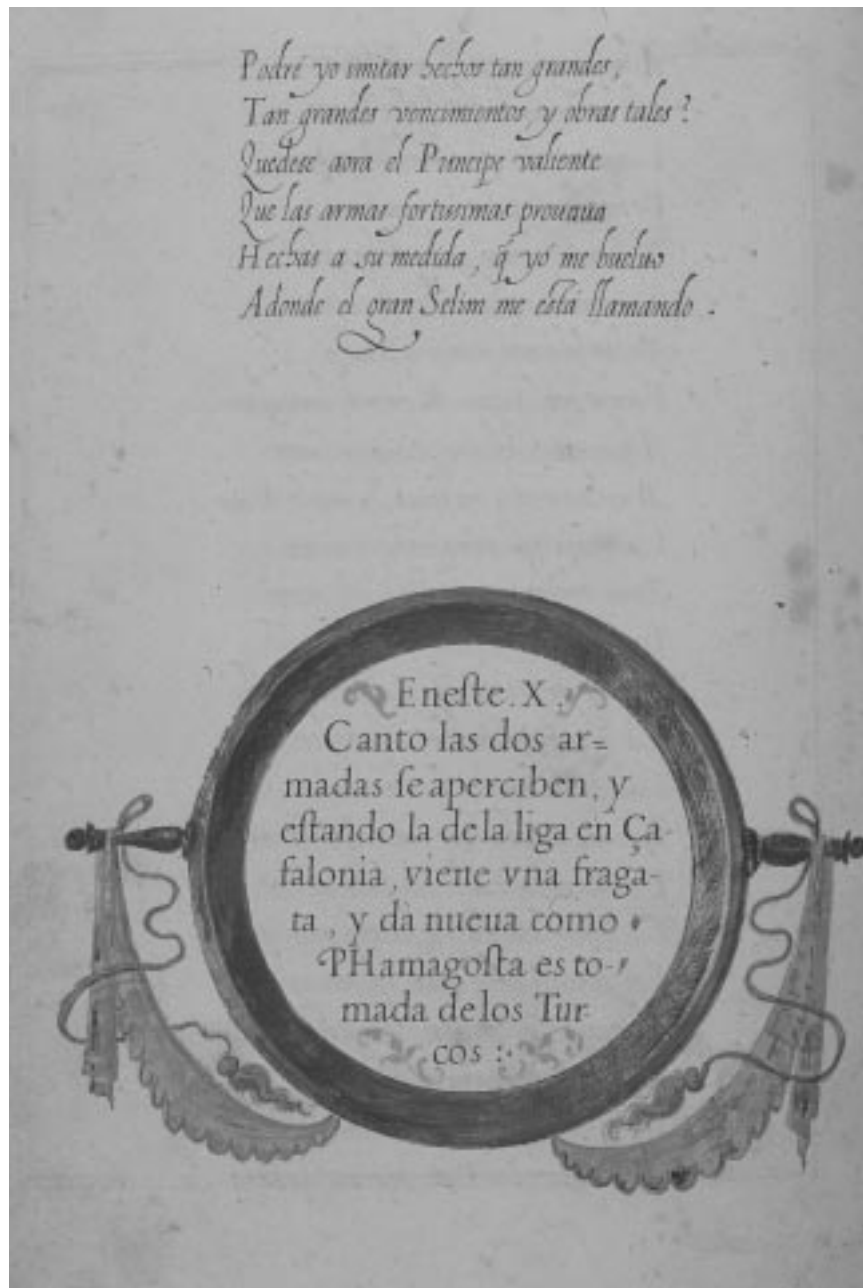 Podré yo imitar hechos tan grandes,
Tan grandes vencimientos, y obras tales?
Quedese aora el Principe valiente
Que las armas fortissimas prouaua
Hechas a su medida, q̃ yó me bueluo
Adonde el gran Selim me está llamando.
Eneſte. X.
Canto las dos ar=
madas ſe aperciben, y
eſtando la de la liga en Ça-
falonia, viene vna fraga-
ta, y dà nueua como
PHamagoſta es to-
mada de los Tur-
cos :·